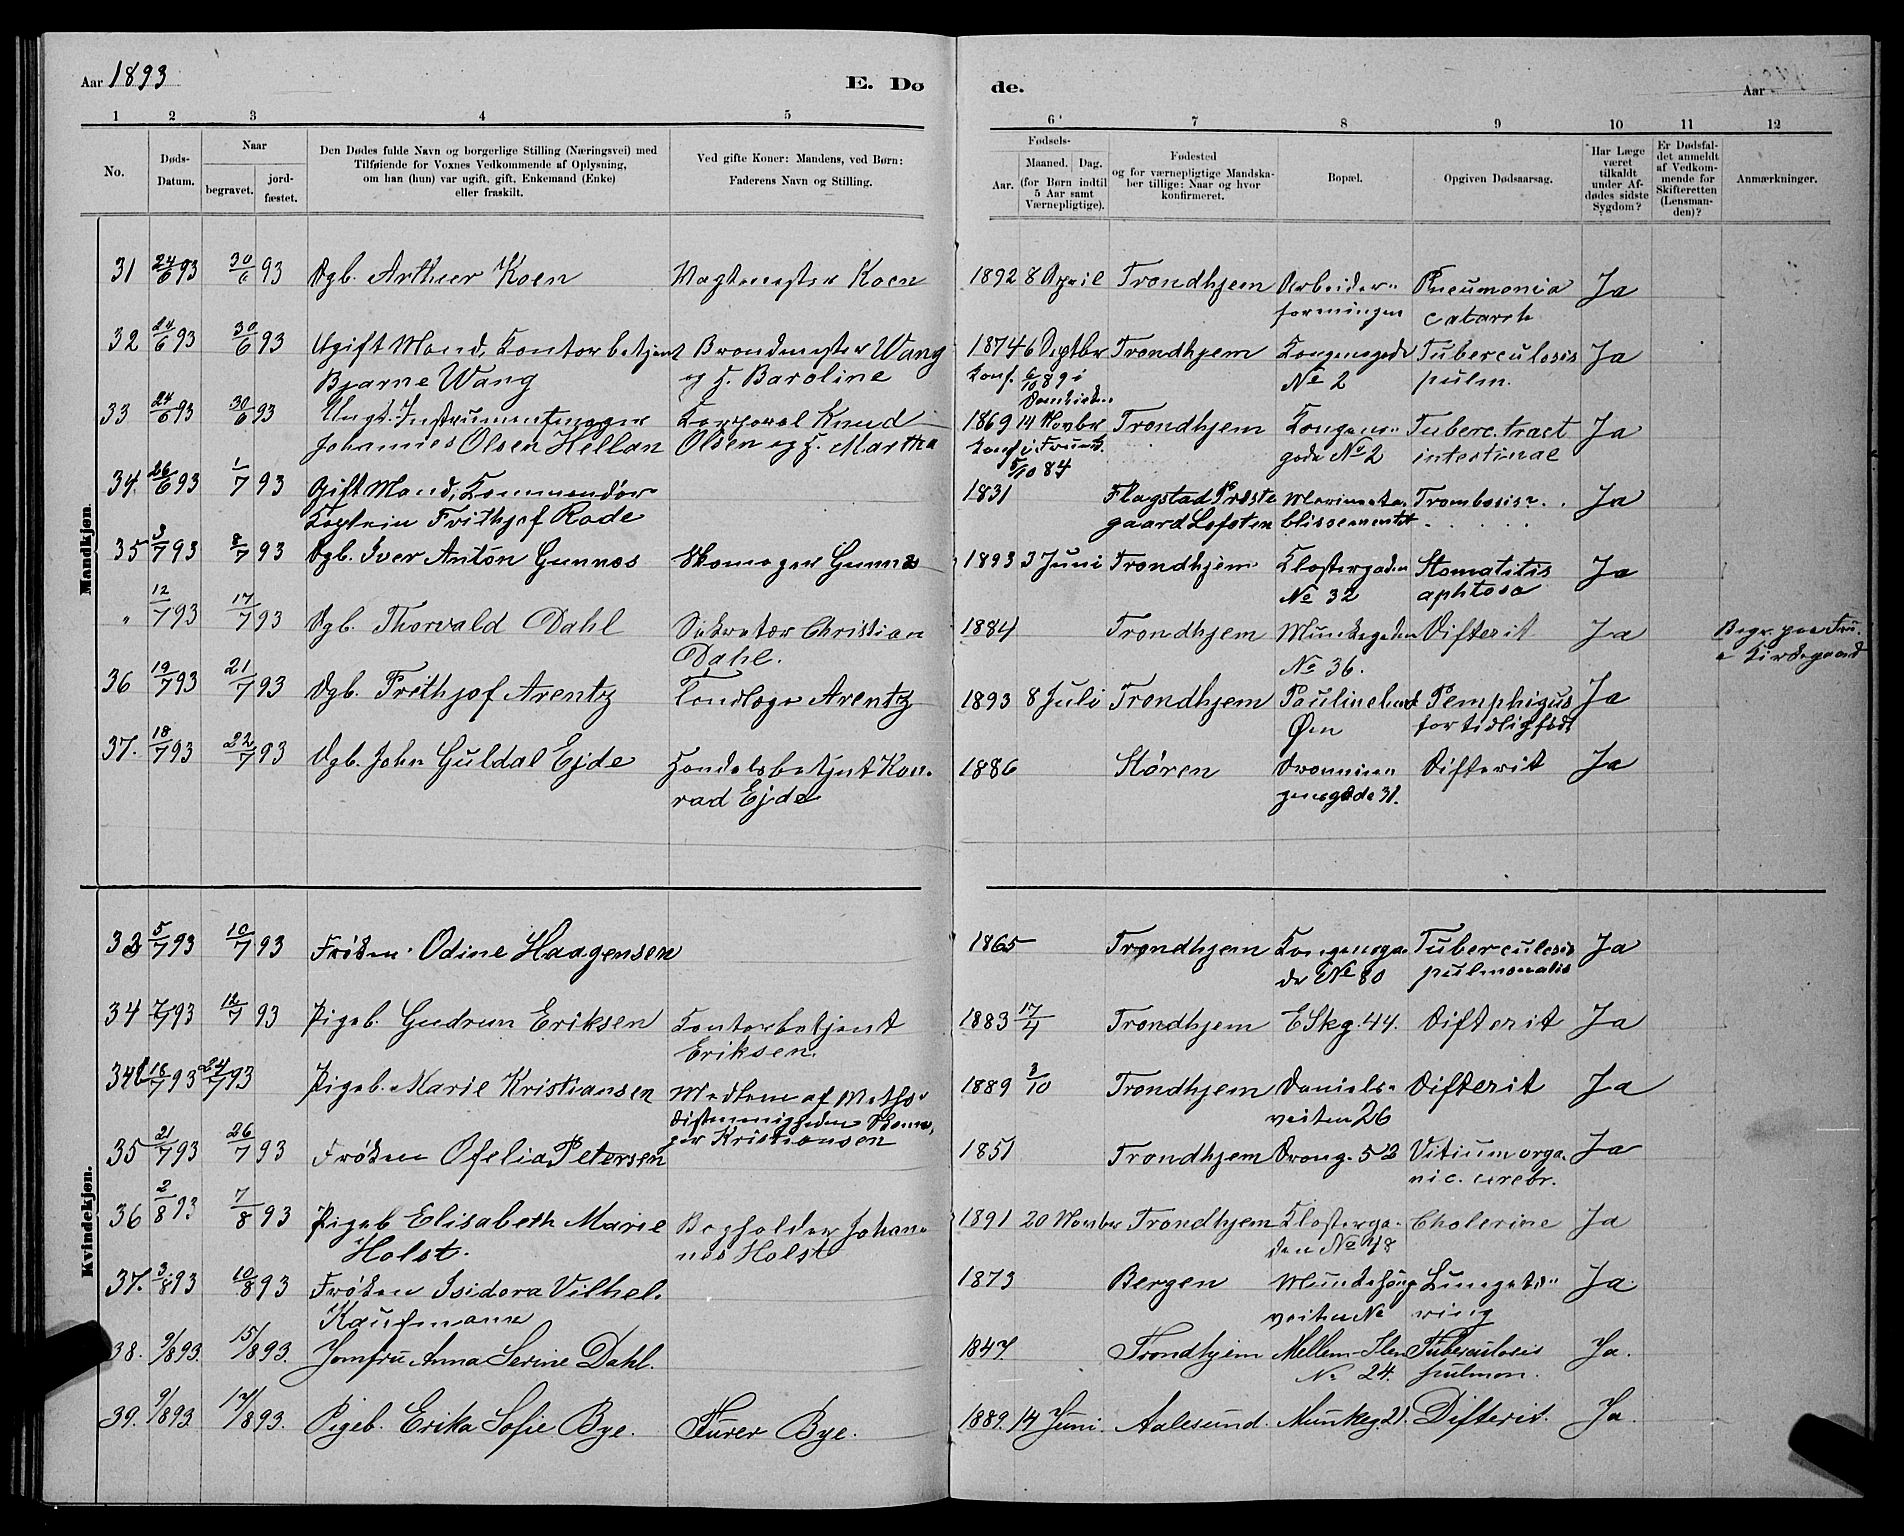 Aar 1893
E. Dø
de.
Aar
1 2 3 4 5
6 7 8 9 10 11 12
No.
Døds-
Datum.
Naar
begravet.
jord-
fæstet.
Den Dødes fulde Navn og borgerlige Stilling (Næringsvei) med
Tilføiende for Voxnes Vedkommende af Oplysning,
om han (hun) var ugift, gift, Enkemand (Enke)
eller fraskilt.
Ved gifte Koner: Mandens, ved Børn:
Faderens Navn og Stilling.
Fødsels-
Aar.
Maaned. Dag.
(for Børn indtil
5 Aar samt
Værnepligtige).
Fødested
og for værnepligtige Mandska-
ber tillige: Naar og hvor
konfirmeret.
Bopæl.
Opgiven Dødsaarsag.
Har Læge
været
tilkaldt
under Af-
dødes sidste
Sygdom?
Er Dødsfal-
det anmeldt
af Vedkom-
mende for
Skifteretten
(Lensman-
den)?
Anmærkninger.
Mandkjøn.
31 24/6 93 30/6 93 Dgb. Arthur Koen Vagtmester Koen 1892 8 April Trondhjem Arbeider- Pneumonia Ja
foreningen catarrh
32 24/6 93 30/6 93 Ugift Mand, Kontorbetjent Brandmester Wang 1874 6 Septbr Trondhjem Kongensgade Tuberculosis Ja
Bjarne Wang og H. Baroline Konf. 6/10 89 i № 2 pulm.
33 24/6 93 30/6 93 Ungk. Instrumentmager Korporal Knud 1869 14 Novbr Trondhjem Kongens- Tuberc. tract Ja
Johannes Olsen Hellan Olsen og H. Martha Konf i Frue K. gade № 2 intestinal
5/10 84
34. 26/6 93 1/7 93 Gift Mand, Kommandør- 1831 Flagstad Præste Marineeta- Trombosis Ja
Kaptein Frithjof Rode gaard Lofoten blissementet
35 3/7 93 8/7 93 Dgb. Iver Anton Gunnes Skomager Gunnes 1893 3 Juni Trondhjem Klostergaden Stomatitis Ja
№ 32 aphtosa
" 12/7 93 17/7 93 Dgb. Thorvald Dahl Sekretær Christian 1884 Trondhjem Munkegaden Difterit Ja Begr. paa Fru-
Dahl. № 36. e Kirkegaard
36 19/7 93 21/7 93 Dgb. Frithjof Arentz Tandlæge Arentz 1893 8 Juli Trondhjem Paulinelund Pemphigus Ja
Øen for tidlig født
37. 18/7 93 22/7 93 Dgb. John Guldal Ejde Handelsbetjent Kon- 1886 Støren Dronnin- Difterit Ja
rad Ejde gensgade 31.
Kvindekjøn.
33 5/7 93 10/7 93 Frøken Odine Haagensen 1865 Trondhjem Kongensga- Tuberculosis Ja
de № 80 pulmonalis
34 7/7 93 12/7 93 Pigeb. Gudrun Eriksen Kontorbetjent 1883 17/4 Trondhjem E Skg. 44. Difterit Ja
Eriksen.
34b 18/7 93 24/7 93 Pigeb. Marie Kristiansen Medlem af Metho- 1889 3/10 Trondhjem Daniels- Difterit Ja
distmenigheden Skoma- veiten 26
ger Kristiansen
35 21/7 93 26/7 93 Frøken Ofelia Petersen 1851 Trondhjem Drong. 52 Vitium orga- Ja
nic. cerebr.
36 2/8 93 7/8 93 Pigeb Elisabeth Marie Bogholder Johan- 1891 20 Novber Trondhjem Klosterga- Cholerine Ja
Holst. nes Holst den № 48
37. 3/8 93 10/8 93 Frøken Isidora Vilhel. 1873 Bergen Munkehaug Lungetæ- Ja
Kaufmann veiten № ring
38. 9/8 93. 15/8 93. Jomfru Anna Serine Dahl. 1847. Trondhjem Mellem-Ilen Tuberculosis Ja.
№ 24. pulmon.
39. 9/8 93. 17/8 93. Pigeb. Erika Sofie Bye. Furer Bye. 1889. 14 Juni. Aalesund. Munkeg. 21. Difterit. Ja.